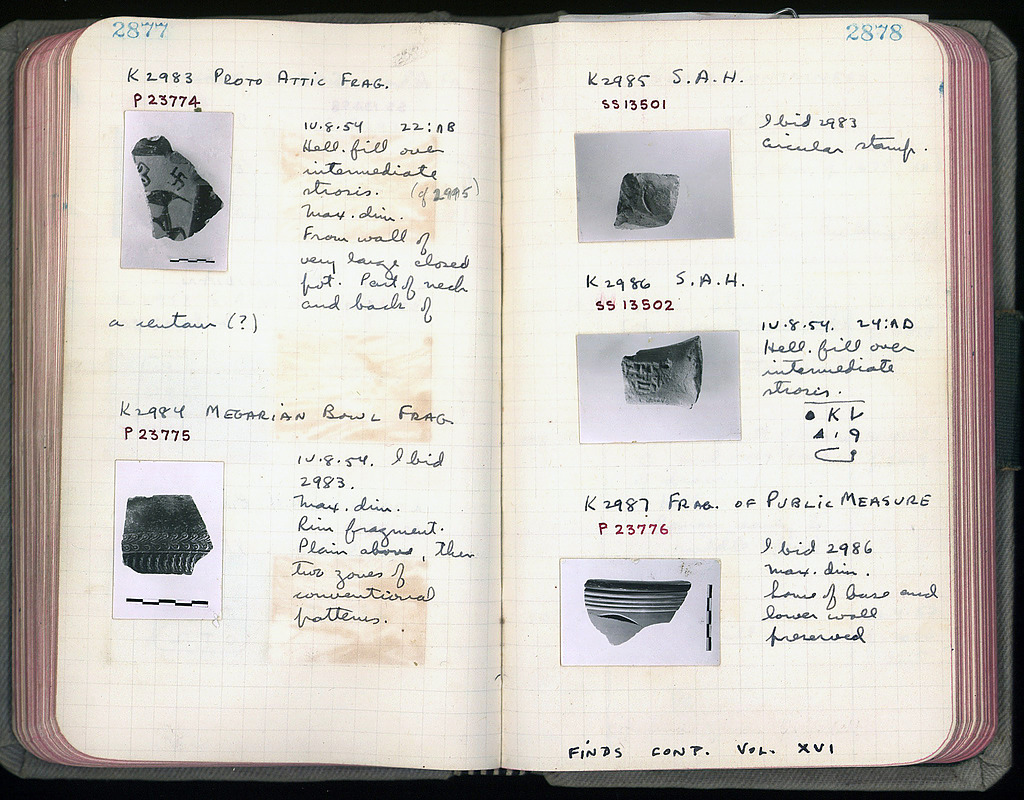 2877
K 2983 PROTO ATTIC FRAG.
P 23774
IV.8.54 22:ΛΒ
Hell. fill over
intermediate
strosis. (cf 2995)
Max. dim.
From wall of
very large closed
pot. Part of neck
and back of
a centaur (?)
K 2984 MEGARIAN BOWL FRAG.
P 23775
IV.8.54. Ibid
2983.
Max. dim.
Rim fragment.
Plain above, then
two zones of
conventional
patterns.
2878
K 2985 S.A.H.
SS 13501
Ibid 2983
circular stamp.
K 2986 S.A.H.
SS 13502
IV.8.54. 24:ΛΔ
Hell. fill over
intermediate
strosis.
K 2987 FRAG. OF PUBLIC MEASURE
P 23776
Ibid 2986
Max. dim.
of base and
lower wall
preserved
FINDS CONT. VOL. XVI